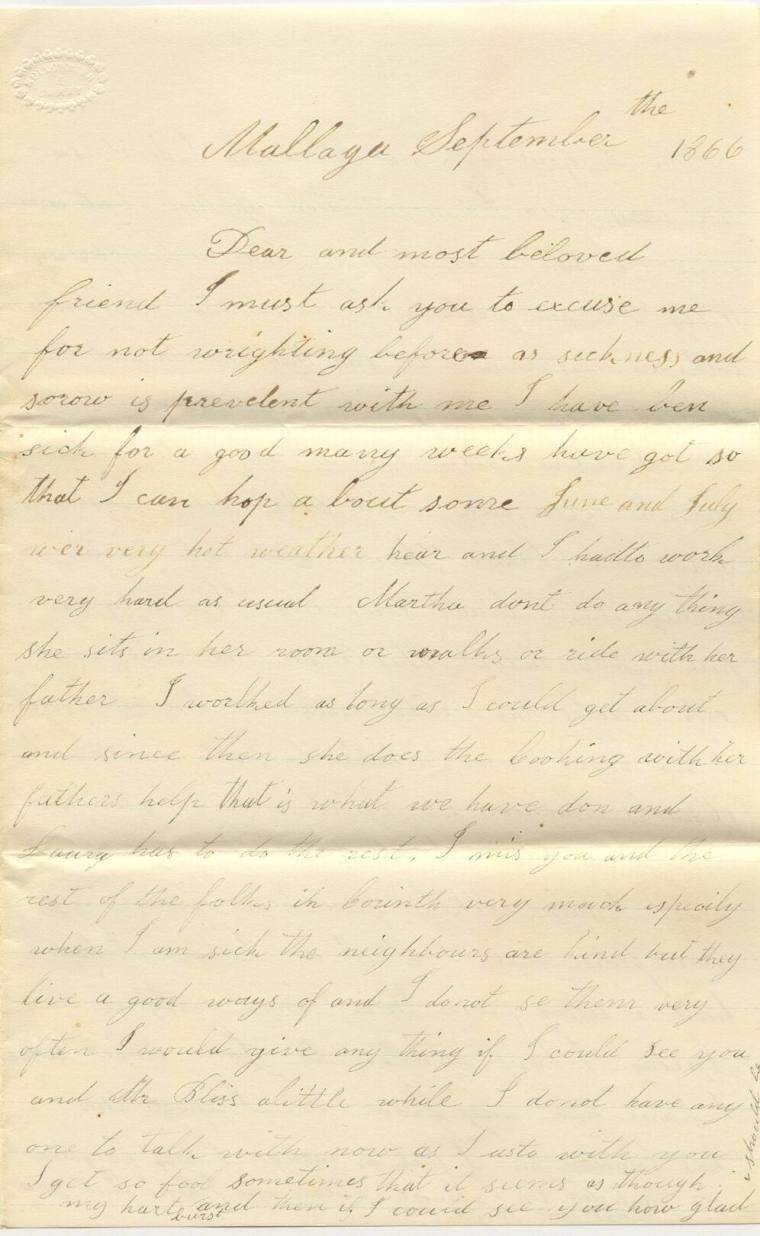 Mallaga September the 1866
Dear and most beloved
friend I must ask you to excuse me
for not wrighting before as sickness and
sorow is prevelent with me I have ben
sick for a good many weeks have got so
that I can hop a bout some June and July
wer very hot weather hear and I had to work
very hard as usual Martha dont do any thing
she sits in her room or walks or ride with her
father I worlked as long as I could get about
and since then she does the Cooking with her
fathers help that is what we have don and
Laury has to do the rest. I mis you and the
rest of the folks in Corinth very much espcily
when I am sick the neighbours are kind but they
live a good ways of and I donot se them very
often I would give any thing if I could see you
and Mr Bliss alittle while I donot have any
one to talk with now as I usto with you
I get so sometimes that it seems as though
my hart burst and then if I could see you how glad
I should be